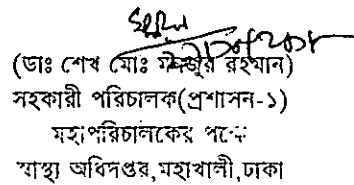 (ডাঃ শেখ মোঃ মনজুর রহমান)
সহকারী পরিচালক(প্রশাসন-১)
মহাপরিচালকের পক্ষে
স্বাস্থ্য অধিদপ্তর,মহাখালী,ঢাকা